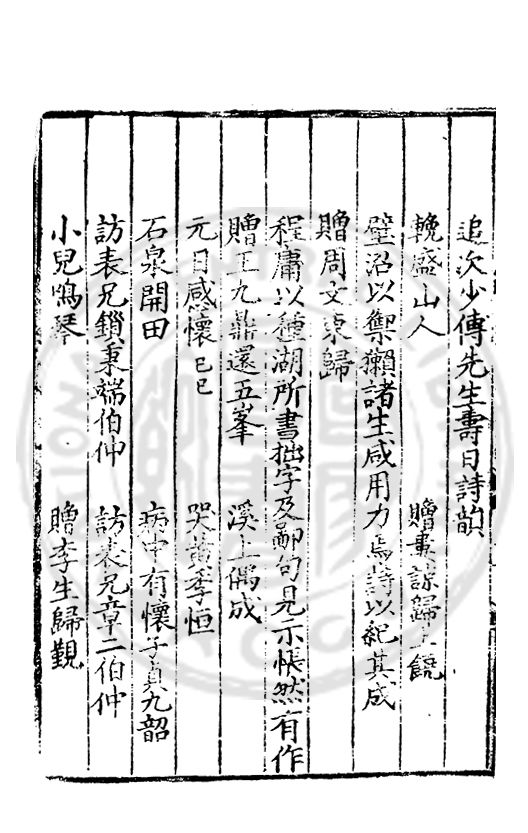 追次少傅先生壽日詩韻
輓盛山人 贈婁諒歸上饒
壁沼以禦獺諸生咸用力焉詩以紀其成
贈周文東歸
程庸以種湖所書拙字及鄙句見示悵然有作
贈王九鼎還五峯 溪上偶成
元日感懷己巳 哭黃季恒
石泉開田 病中有懷子貞九韶
訪表兄鎖秉端伯仲 訪表兄章二伯仲
小兒鳴琴 贈李生歸覲